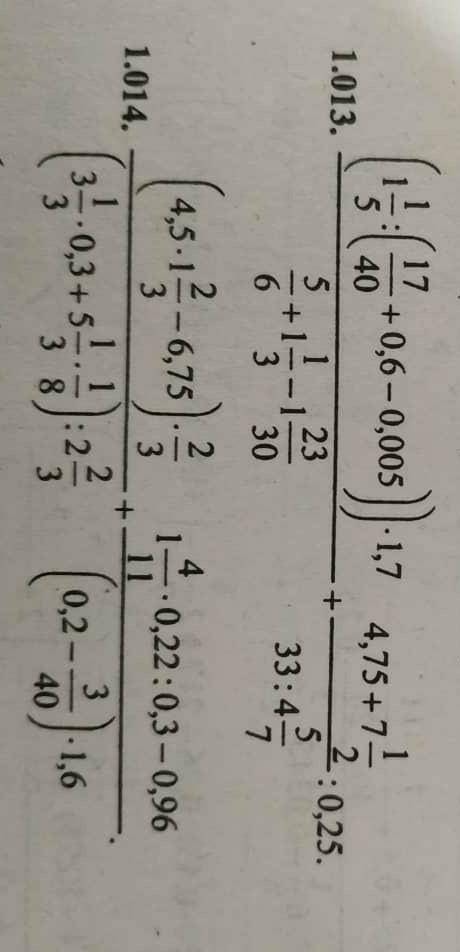 1.013. ((1 1/5 : (17/40 + 0,6 − 0,005)) · 1,7)/(5/6 + 1 1/3 − 1 23/30) + (4,75 + 7 1/2)/(33 : 4 5/7) : 0,25.
1.014. ((4,5 · 1 2/3 − 6,75) · 2/3)/((3 1/3 · 0,3 + 5 1/3 · 1/8) : 2 2/3) + (1 4/11 · 0,22 : 0,3 − 0,96)/((0,2 − 3/40) · 1,6).